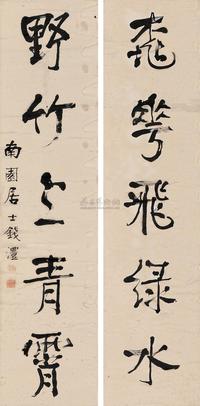 桃華飛綠水
野竹上青霄
南園居士錢灃